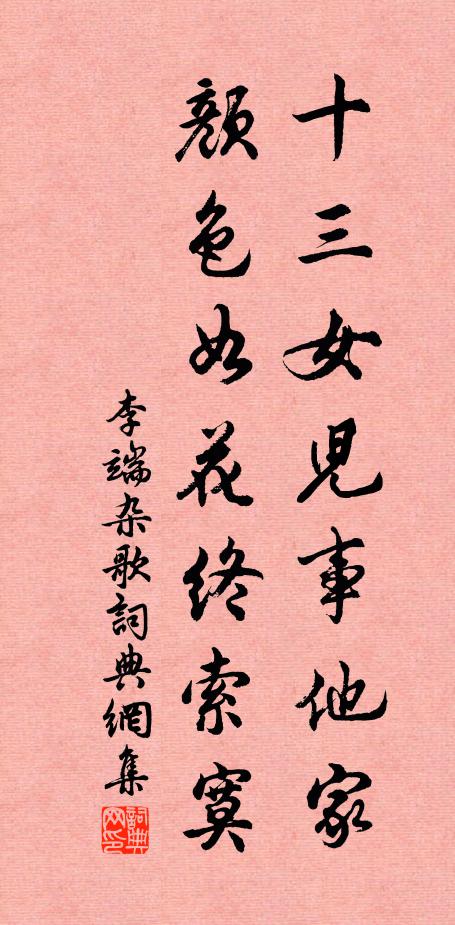 十三女児事他家
顏色如花終索寞
李端杂歌詞典網集
詞典网印